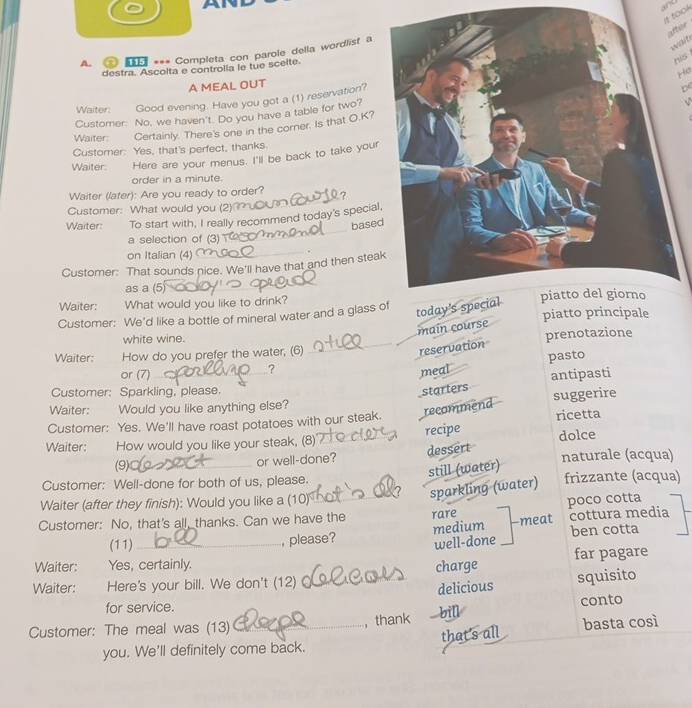 AND
A. 115 Completa con parole della wordlist a
destra. Ascolta e controlla le tue scelte.
A MEAL OUT
Waiter: Good evening. Have you got a (1) reservation?
Customer: No, we haven't. Do you have a table for two?
Waiter: Certainly. There's one in the corner. Is that O.K?
Customer: Yes, that's perfect, thanks.
Waiter: Here are your menus. I'll be back to take your
order in a minute.
Waiter (later): Are you ready to order?
Customer: What would you (2) main course ?
Waiter: To start with, I really recommend today's special,
a selection of (3) recommend based
on Italian (4) meal .
Customer: That sounds nice. We'll have that and then steak
as a (5) today's special
Waiter: What would you like to drink?
Customer: We'd like a bottle of mineral water and a glass of
white wine.
Waiter: How do you prefer the water, (6) still
or (7) sparkling ?
Customer: Sparkling, please.
Waiter: Would you like anything else?
Customer: Yes. We'll have roast potatoes with our steak.
Waiter: How would you like your steak, (8)
(9) dessert or well-done?
Customer: Well-done for both of us, please.
Waiter (after they finish): Would you like a (10) that's all ?
Customer: No, that's all, thanks. Can we have the
(11) bill , please?
Waiter: Yes, certainly.
Waiter: Here's your bill. We don't (12)
for service.
Customer: The meal was (13) , thank
you. We'll definitely come back.
today's special piatto del giorno
main course piatto principale
reservation prenotazione
meal pasto
starters antipasti
recommend suggerire
recipe ricetta
dessert dolce
still (water) naturale (acqua)
sparkling (water) frizzante (acqua)
rare poco cotta
medium meat cottura media
well-done ben cotta
charge far pagare
delicious squisito
bill conto
that's all basta così
it took
after
wait
his
He